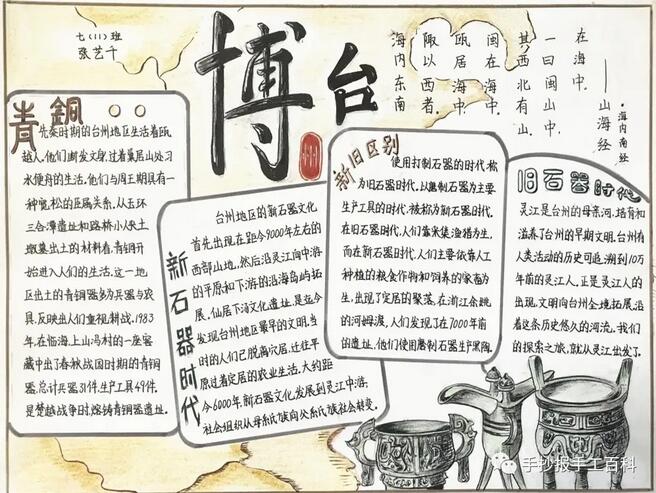 七(11)班
张艺千
博台
州
海内东南
陬以西者。
瓯居海中。
闽在海中,
其西北有山。
一曰闽山中,
在海中。
——山海经
·海内南经
青铜
先秦时期的台州地区生活着瓯
越人,他们断发文身,过着巢居山处习
水便舟的生活。他们与周王朝具有一
种宽松的臣属关系,从玉环
三合潭遗址和路桥小人尖土
墩墓出土的材料看,青铜开
始进入人们的生活。这一地
区出土的青铜器多为兵器与农
具,反映出人们重视耕战。1983
年,在临海,上山冯村的一座窖
藏中出了春秋战国时期的青铜
器,总计兵器31件,生产工具49件,
是楚越战争时,熔铸青铜器遗址。
新石器时代
台州地区的新石器文化
首先出现在距今9000年左右的
西部山地。然后沿灵江向中游
的平原和下游的沿海岛屿拓
展,仙居下汤文化遗址,是迄今
发现台州地区最早的文明,当
时的人们已脱离穴居,迁往平
原过着定居的农业生活。大约距
今6000年,新石器文化发展到灵江中游,
社会组织从母系氏族向父系氏族社会转变。
新旧区别
使用打制石器的时代,称
为旧石器时代。以磨制石器为主要
生产工具的时代,被称为新石器时代。
在旧石器时代,人们靠采集渔猎为生,
而在新石器时代,人们主要依靠人工
种植的粮食作物和饲养的家畜为
生,出现了定居的聚落,在浙江余姚
的河姆渡,人们发现了在7000年前
的遗址,他们使用磨制石器生产黑陶
旧石器时代
灵江是台州的母亲河,培育和
滋养了台州的早期文明。台州有
人类活动的历史可追溯到10万
年前的灵江人,正是灵江人的
出现,文明向台州全境拓展,沿
着这条历史悠久的河流,我们
的探索之旅,就从灵江出发了。
手抄报手工百科